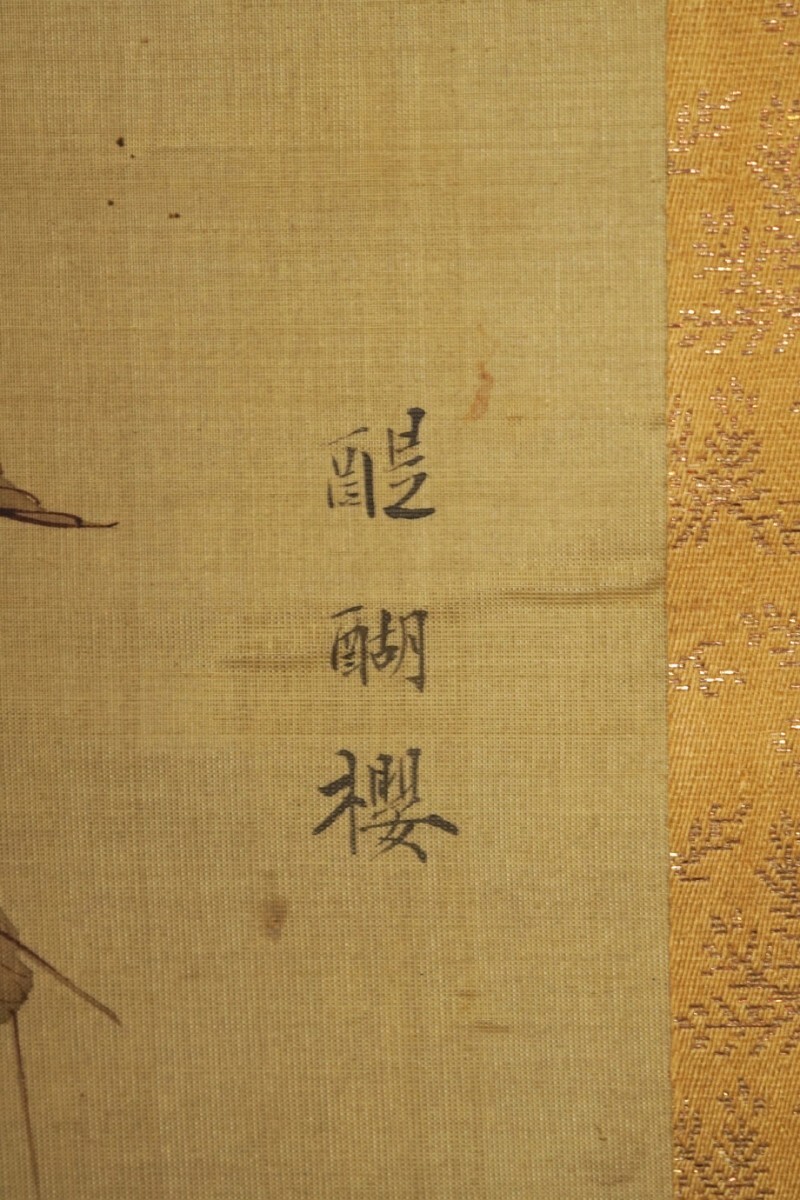 醍醐櫻